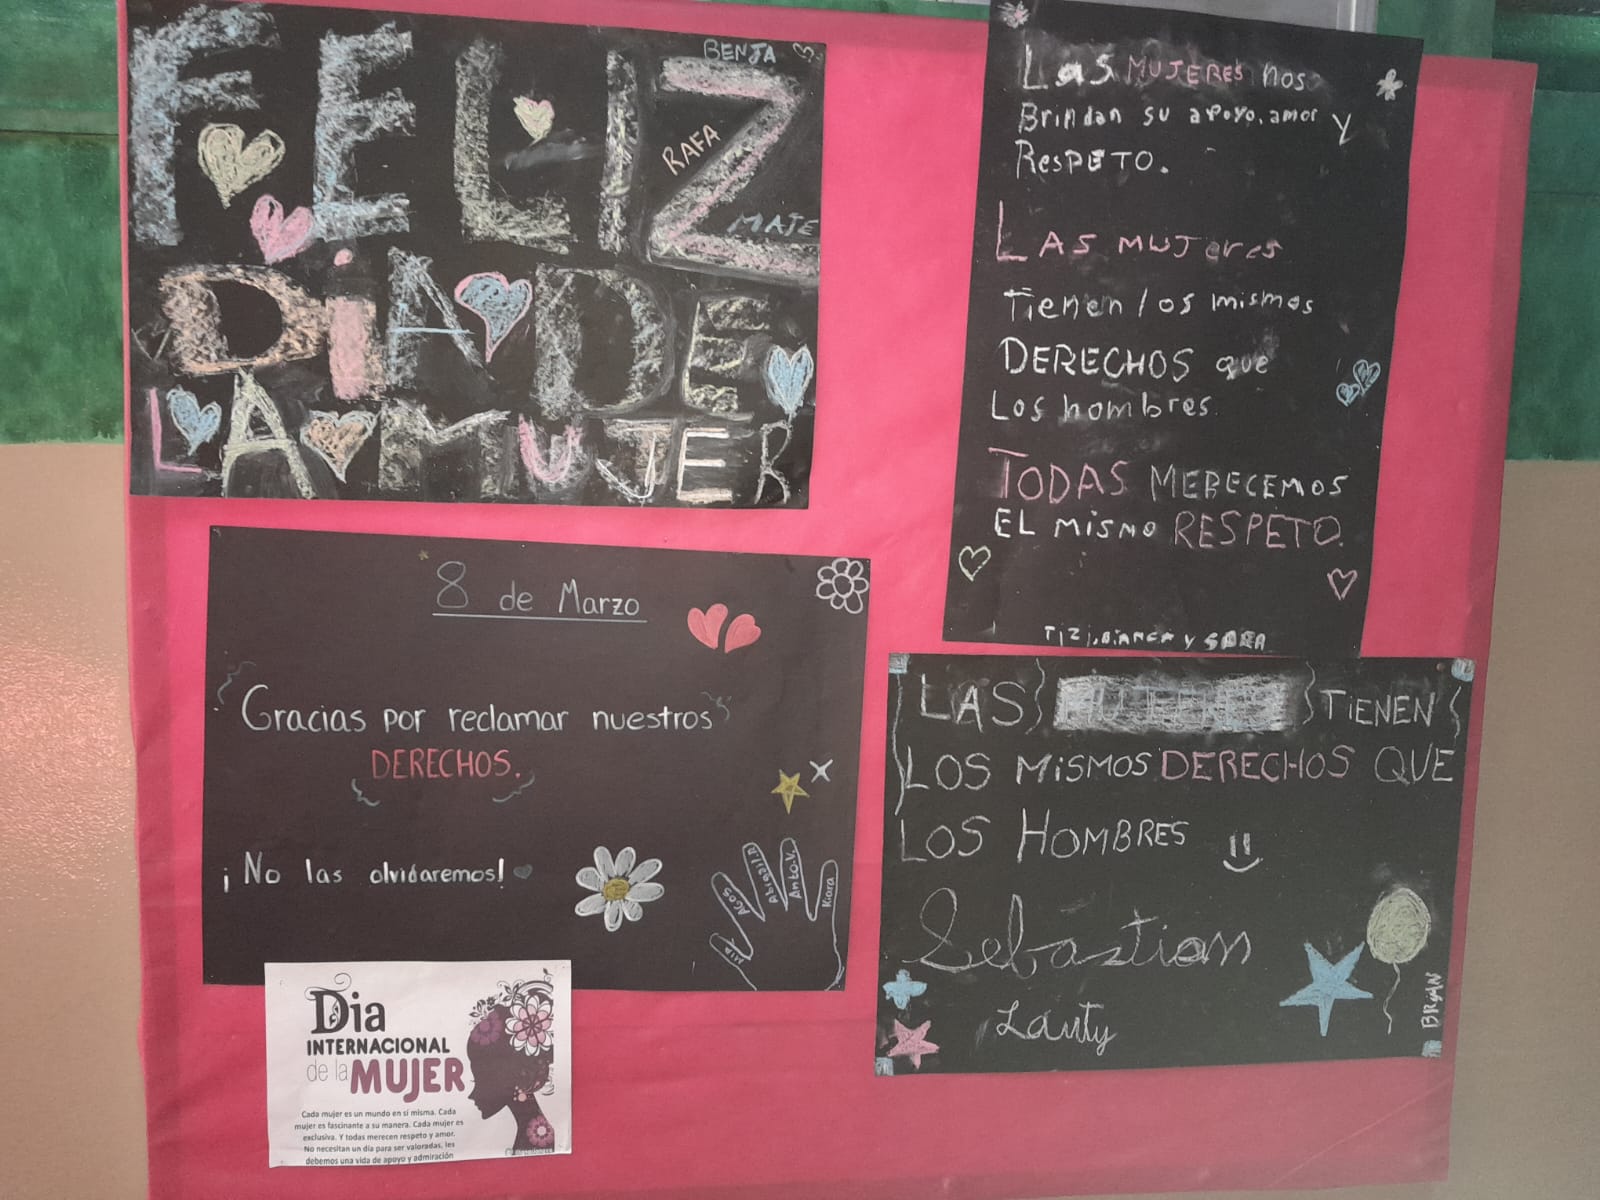 FELIZ
BENJA
RAFA
MATE
DiA DE
LA MUJER
Las MUJERES nos
Brindan su apoyo, amor y
RESPETO.
LAS MUJeres
Tienen los mismos
DERECHOS que
Los hombres
TODAS MERECEMOS
EL MiSMO RESPETO.
TIZI, BIANCA Y SARA
8 de Marzo
Gracias por reclamar nuestros
DERECHOS.
¡No las olvidaremos!
MIA
AGOS
Abigail.R
Anto.V.
Kiara
LAS MUJERES TiENEN
LOS MiSMOS DERECHOS QUE
LOS HOMBRES
Sebástian
Lauty
BRiAN
Dia
INTERNACIONAL
de la MUJER
Cada mujer es un mundo en sí misma. Cada
mujer es fascinante a su manera. Cada mujer es
exclusiva. Y todas merecen respeto y amor.
No necesitan un día para ser valoradas, les
debemos una vida de apoyo y admiración